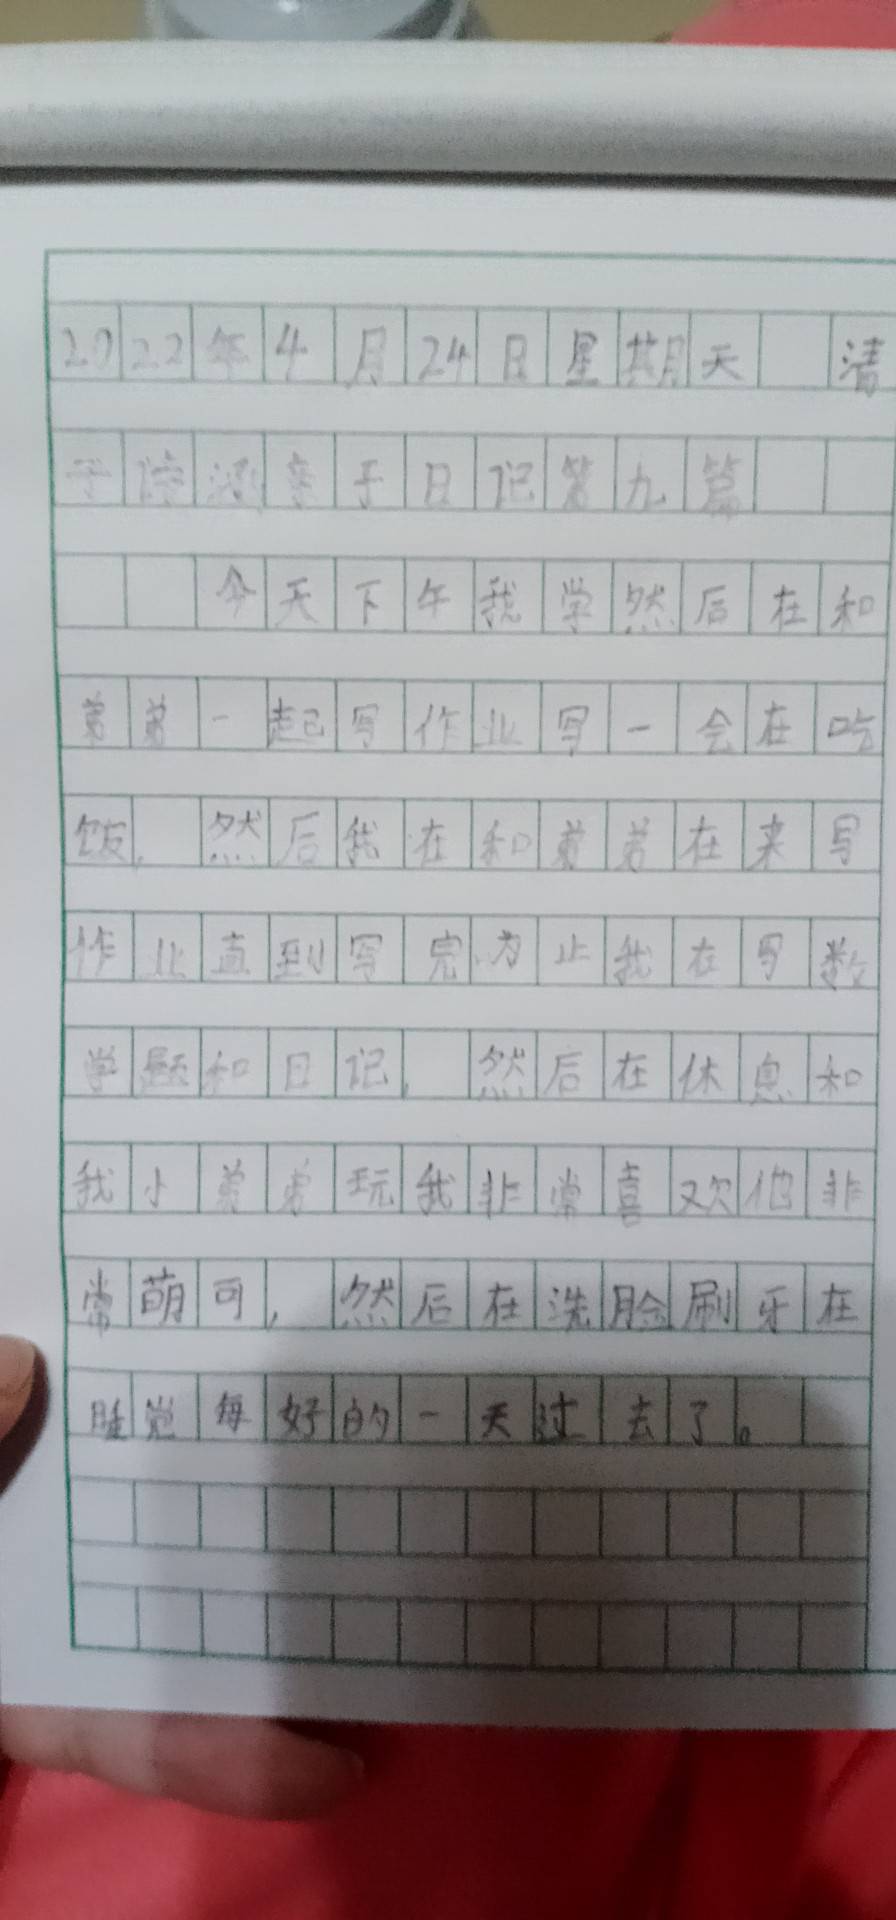 2022年4月24日星期天 清
于诗涵亲子日记第九篇
今天下午我学然后在和
弟弟一起写作业写一会在吃
饭,然后我在和弟弟在来写
作业直到写完为止我在写数
学题和日记,然后在休息和
我小弟弟玩我非常喜欢他非
常萌可,然后在洗脸刷牙在
睡觉每好的一天过去了。